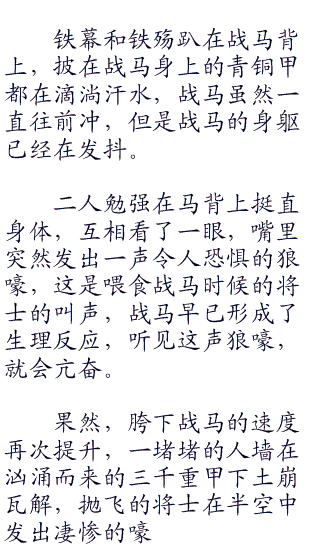 铁幕和铁殇趴在战马背
上，披在战马身上的青铜甲
都在滴淌汗水，战马虽然一
直往前冲，但是战马的身躯
已经在发抖。
二人勉强在马背上挺直
身体，互相看了一眼，嘴里
突然发出一声令人恐惧的狼
嚎，这是喂食战马时候的将
士的叫声，战马早已形成了
生理反应，听见这声狼嚎，
就会亢奋。
果然，胯下战马的速度
再次提升，一堵堵的人墙在
汹涌而来的三千重甲下土崩
瓦解，抛飞的将士在半空中
发出凄惨的嚎